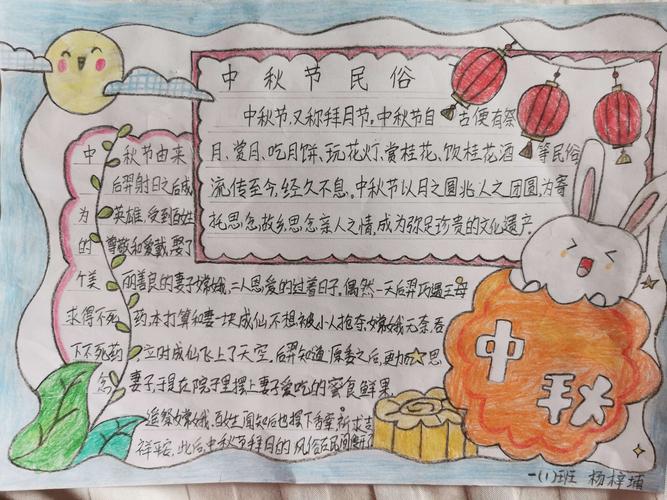 中秋节民俗
中秋节,又称拜月节。中秋节自 古便有祭
月、赏月、吃月饼、玩花灯、赏桂花、饮桂花酒 等民俗
流传至今,经久不息。中秋节以月之圆兆人之团圆,为寄
托思念故乡,思念亲人之情,成为弥足珍贵的文化遗产。
中 秋节由来
后羿射日之后成
为 英雄,受到百姓
的 尊敬和爱戴,娶了
个美 丽善良的妻子嫦娥,二人恩爱的过着日子。偶然一天后羿巧遇王母
求得不死 药,本打算和妻一块成仙不想被小人抢夺嫦娥无奈吞
下不死药 立时成仙飞上了天空,后羿知道原委之后,思
念 妻子,于是在院子里摆上妻子爱吃的蜜食鲜果
遥祭嫦娥,百姓闻知后也摆下香案祈求吉
祥平安,此后,中秋节拜月的风俗在民间
中秋
一(1)班 杨梓